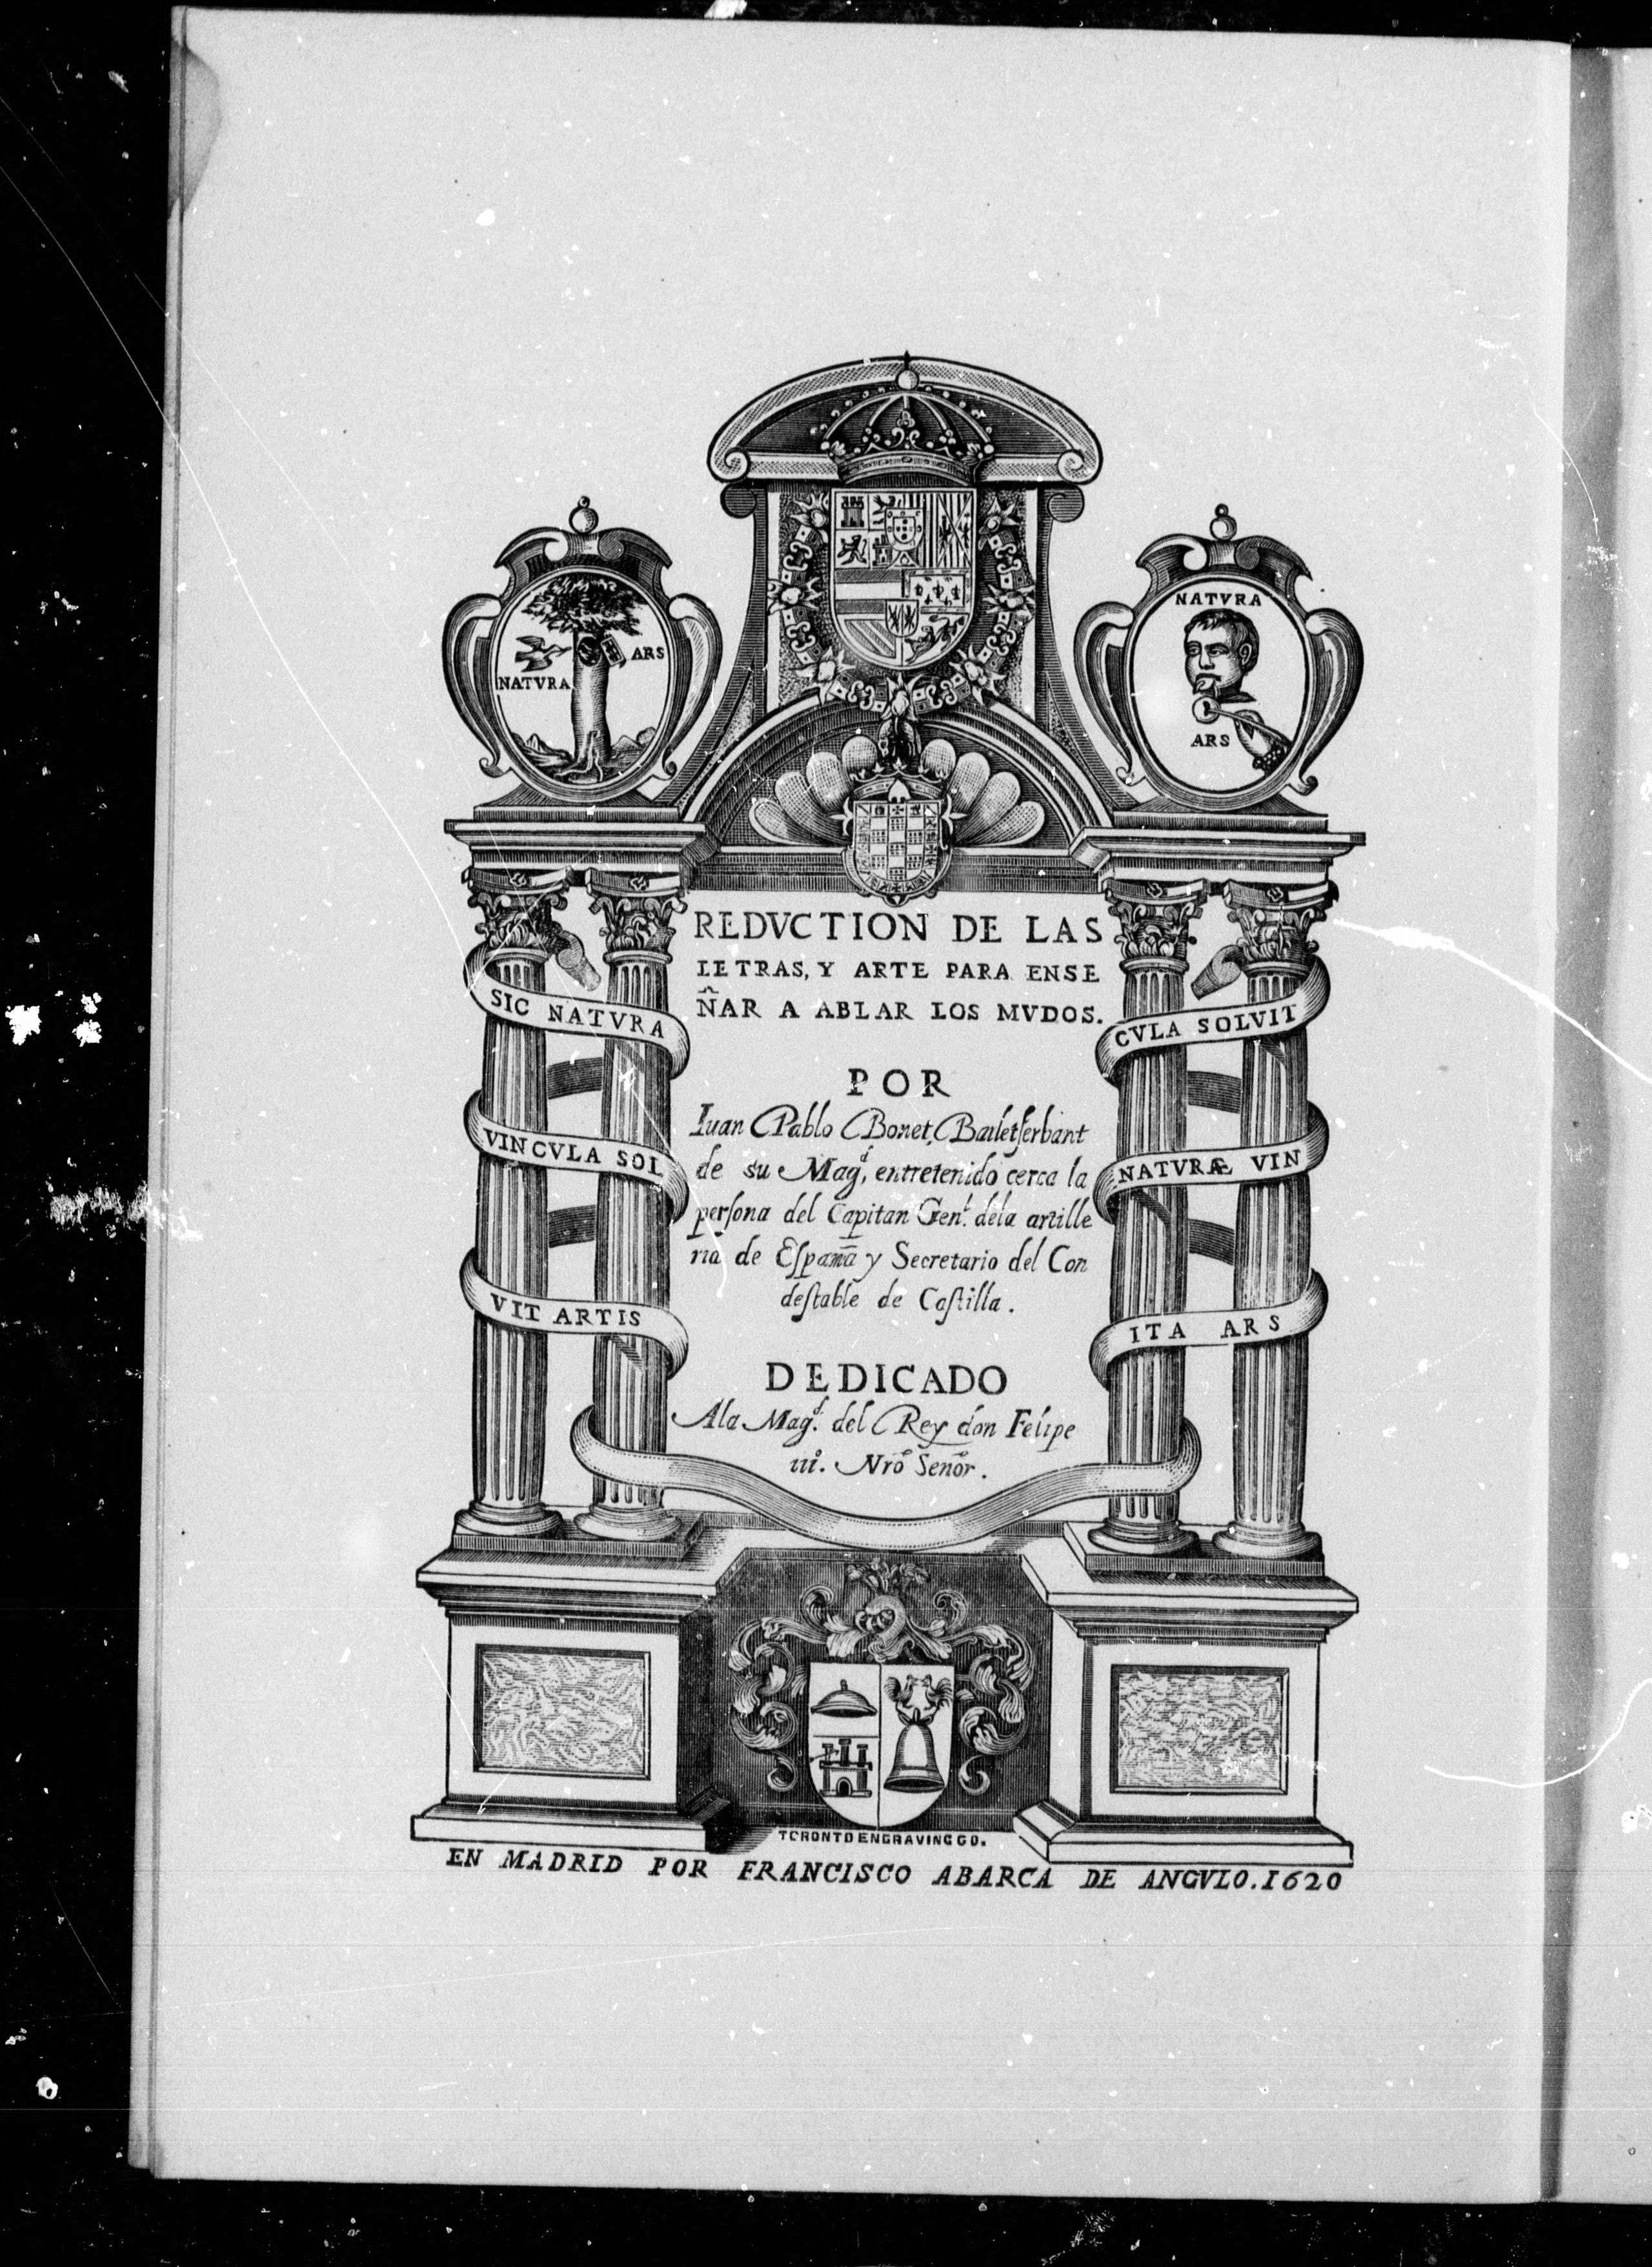 NATVRA
ARS
NATVRA
ARS
REDVCTION DE LAS
LETRAS, Y ARTE PARA ENSE
ÑAR A ABLAR LOS MVDOS.
SIC NATVRA
VINCVLA SOL
VIT ARTIS
CVLA SOLVIT
NATVRÆ VIN
ITA ARS
POR
Iuan Pablo Bonet, Barletserbant
de su Mag^d, entretenido cerca la
persona del Capitan Gen^l. dela artille
ria de España y Secretario del Con
destable de Castilla.
DEDICADO
Ala Mag^d. del Rey don Felipe
iii^o. Nrō Señor.
TORONTO ENGRAVING CO.
EN MADRID POR FRANCISCO ABARCA DE ANGVLO. 1620